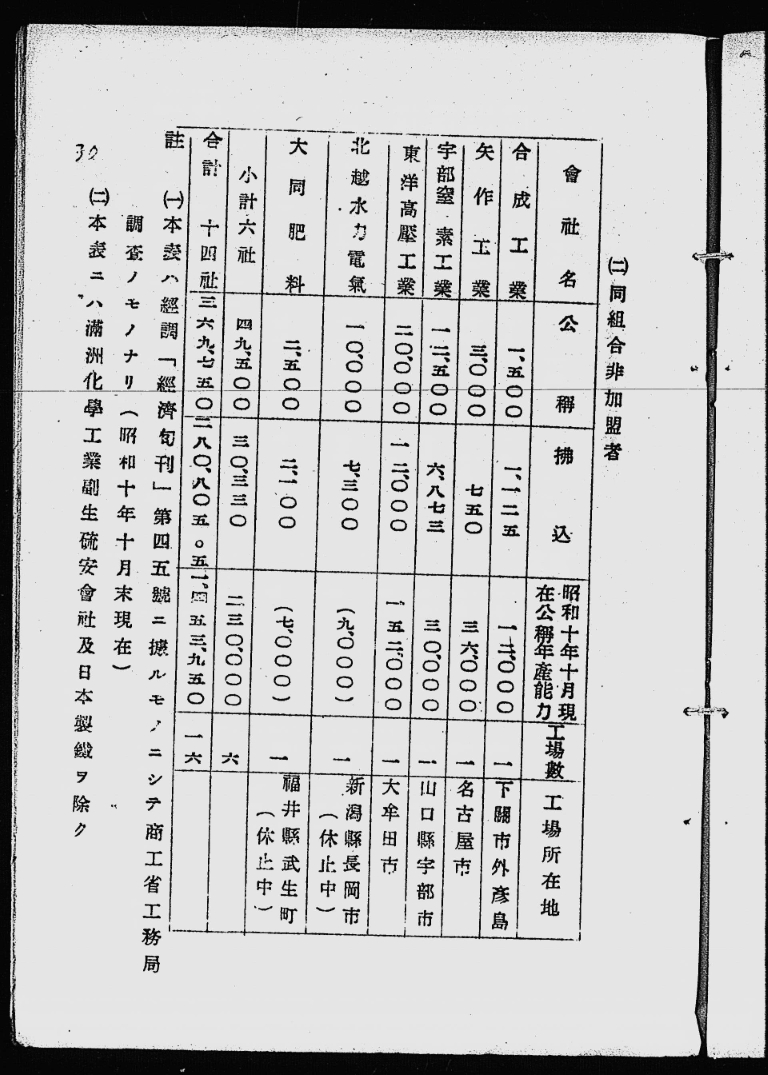 ㈡同組合非加盟者
會社名 公稱 拂込 昭和十年十月現在公稱年產能力 工場數 工場所在地
合成工業 一、五〇〇 一、一二五 一二、〇〇〇 一 下關市外彥島
矢作工業 三、〇〇〇 七五〇 三六、〇〇〇 一 名古屋市
宇部窒素工業 一二、五〇〇 六、八七三 三〇、〇〇〇 一 山口縣宇部市
東洋高壓工業 二〇、〇〇〇 一二、〇〇〇 一五二、〇〇〇 一 大牟田市
北越水力電氣 一〇、〇〇〇 七、三〇〇 (九、〇〇〇) 一 新潟縣長岡市(休止中)
大同肥料 二、五〇〇 二、一〇〇 (七、〇〇〇) 一 福井縣武生町(休止中)
小計六社 四九、五〇〇 三〇、三三〇 二三〇、〇〇〇 六
合計 十四社 三六九、七五〇 二八〇、八〇五。五 一、四五三、九五〇 一六
註 ㈠本表ハ經調「經濟旬刊」第四五號ニ據ルモノニシテ商工省工務局
調査ノモノナリ(昭和十年十月末現在)
㈡本表ニハ滿洲化學工業副生硫安會社及日本製鐵ヲ除ク
30